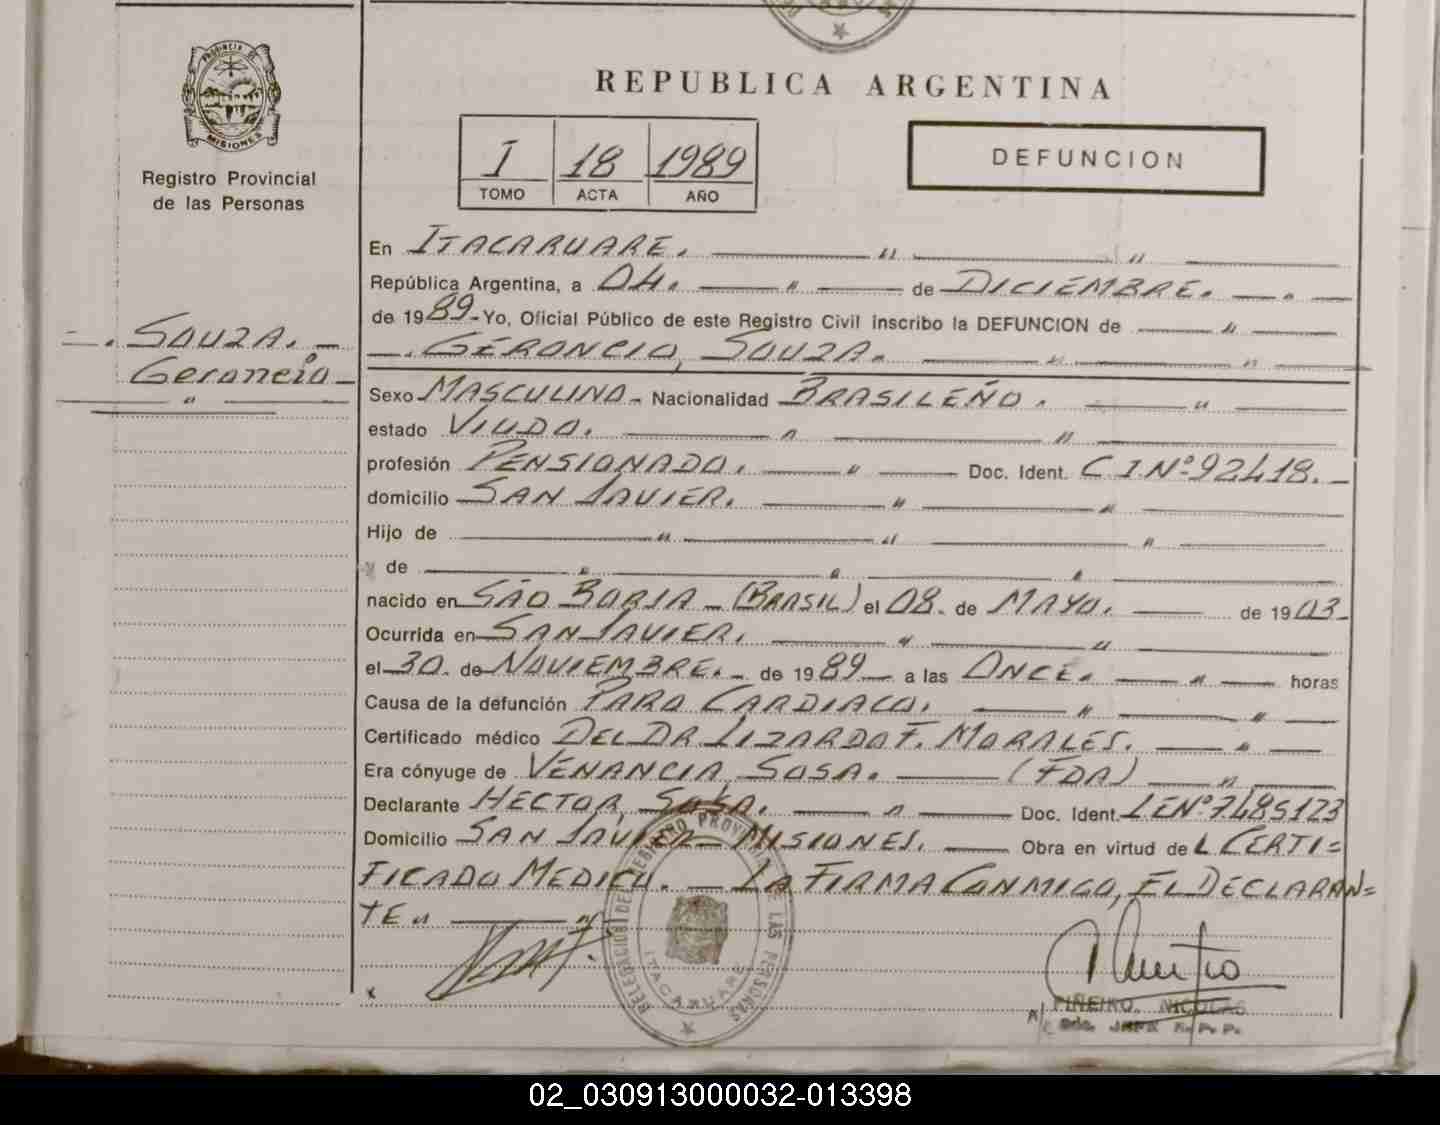 PROVINCIA DE
MISIONES
Registro Provincial
de las Personas
SOUZA.
Geroncio
REPUBLICA ARGENTINA
I 18 1989
TOMO ACTA AÑO
DEFUNCION
En ITACARUARE. " "
República Argentina, a 04. " de DICIEMBRE. "
de 1989 - Yo, Oficial Público de este Registro Civil inscribo la DEFUNCION de "
GERONCIO, SOUZA. " "
Sexo MASCULINO - Nacionalidad BRASILEÑO. "
estado VIUDO. " "
profesión PENSIONADO. " Doc. Ident. C I. Nº 92418.
domicilio SAN JAVIER. " "
Hijo de " " "
y de " " "
nacido en SÃO BORJA - (BRASIL) el 08. de MAYO. de 1903
Ocurrida en SAN JAVIER. " "
el 30. de NOVIEMBRE. de 1989 a las ONCE. " horas
Causa de la defunción PARO CARDIACO. " "
Certificado médico DEL DR LIZARDO F. MORALES. "
Era cónyuge de VENANCIA, SOSA. (FDA) "
Declarante HECTOR, SOSA. " Doc. Ident. LE Nº 7485123
Domicilio SAN JAVIER - MISIONES. Obra en virtud de L CERTI=
FICADO MEDICO. - LA FIRMA CONMIGO, EL DECLARAN=
TE " "
DELEGACION DEL REGISTRO PROVINCIAL DE LAS PERSONAS
ITACARUARE
PIÑEIRO, NICOLAS
02_030913000032-013398